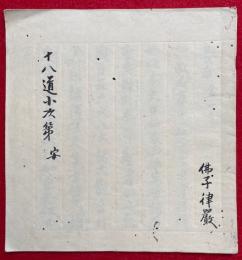 十八道小次第 安
佛子律嚴